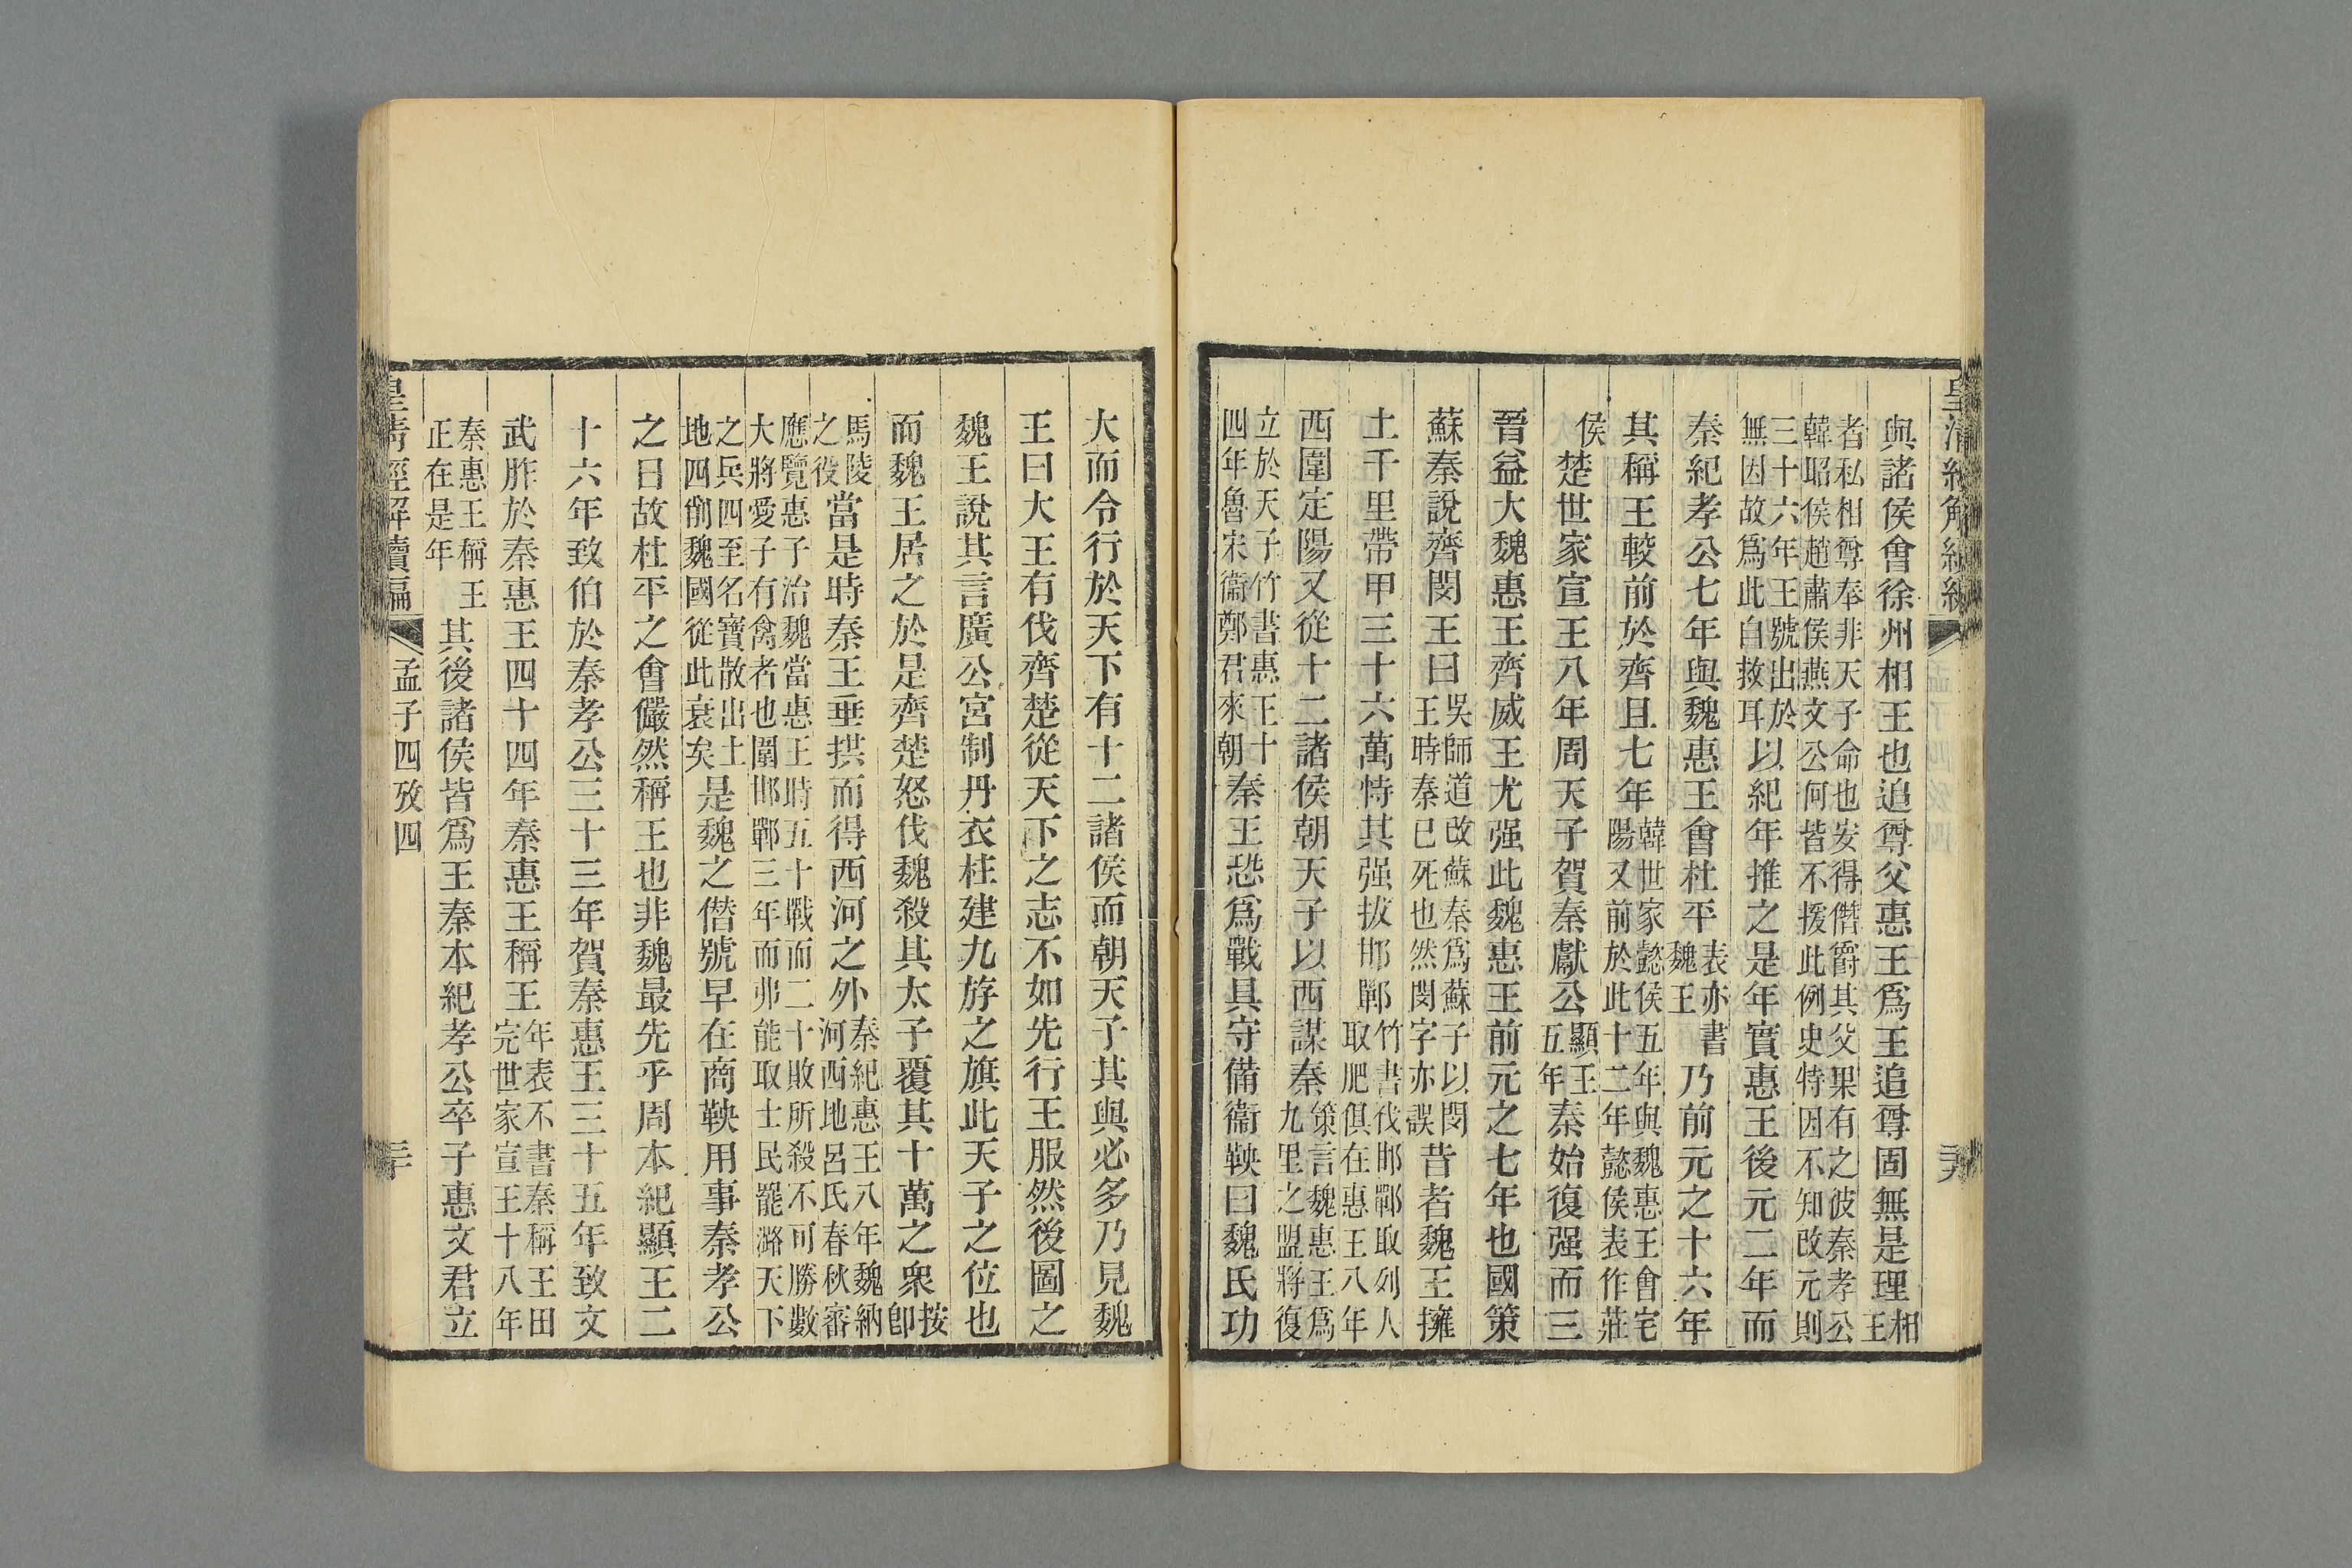 皇清經解續編
與諸侯會徐州相王也追尊父惠王爲王追尊固無是理相王
者私相尊奉非天子命也安得僭爵其父果有之彼秦孝公
韓昭侯趙肅侯燕文公何皆不援此例史特因不知改元則
三十六年王號出於無因故爲此自救耳以紀年推之是年實惠王後元二年而
秦紀孝公七年與魏惠王會杜平表亦書魏王乃前元之十六年
其稱王較前於齊且七年韓世家懿侯五年與魏惠王會宅陽又前於此十二年懿侯表作莊
侯楚世家宣王八年周天子賀秦獻公顯王五年秦始復强而三
晉益大魏惠王齊威王尤强此魏惠王前元之七年也國策
蘇秦說齊閔王曰吳師道改蘇秦爲蘇子以閔王時秦已死也然閔字亦誤昔者魏王擁
土千里帶甲三十六萬恃其强拔邯鄲竹書伐邯鄲取列人取肥俱在惠王八年
西圍定陽又從十二諸侯朝天子以西謀秦策言魏惠王爲九里之盟將復
立於天子竹書惠王十四年魯宋衞鄭君來朝秦王恐爲戰具守備衞鞅曰魏氏功
大而令行於天下有十二諸侯而朝天子其與必多乃見魏
王曰大王有伐齊楚從天下之志不如先行王服然後圖之
魏王說其言廣公宮制丹衣柱建九斿之旗此天子之位也
而魏王居之於是齊楚怒伐魏殺其太子覆其十萬之衆按卽
馬陵之役當是時秦王垂拱而得西河之外秦紀惠王八年魏納河西地呂氏春秋審
應覽惠子治魏當惠王時五十戰而二十敗所殺不可勝數
大將愛子有禽者也圍邯鄲三年而弗能取士民罷潞天下
之兵四至名寶散出土地四削魏國從此衰矣是魏之僭號早在商鞅用事秦孝公
之日故杜平之會儼然稱王也非魏最先乎周本紀顯王二
十六年致伯於秦孝公三十三年賀秦惠王三十五年致文
武胙於秦惠王四十四年秦惠王稱王年表不書秦稱王田完世家宣王十八年
秦惠王稱王正在是年其後諸侯皆爲王秦本紀孝公卒子惠文君立
皇清經解續編 孟子四攷四 三十